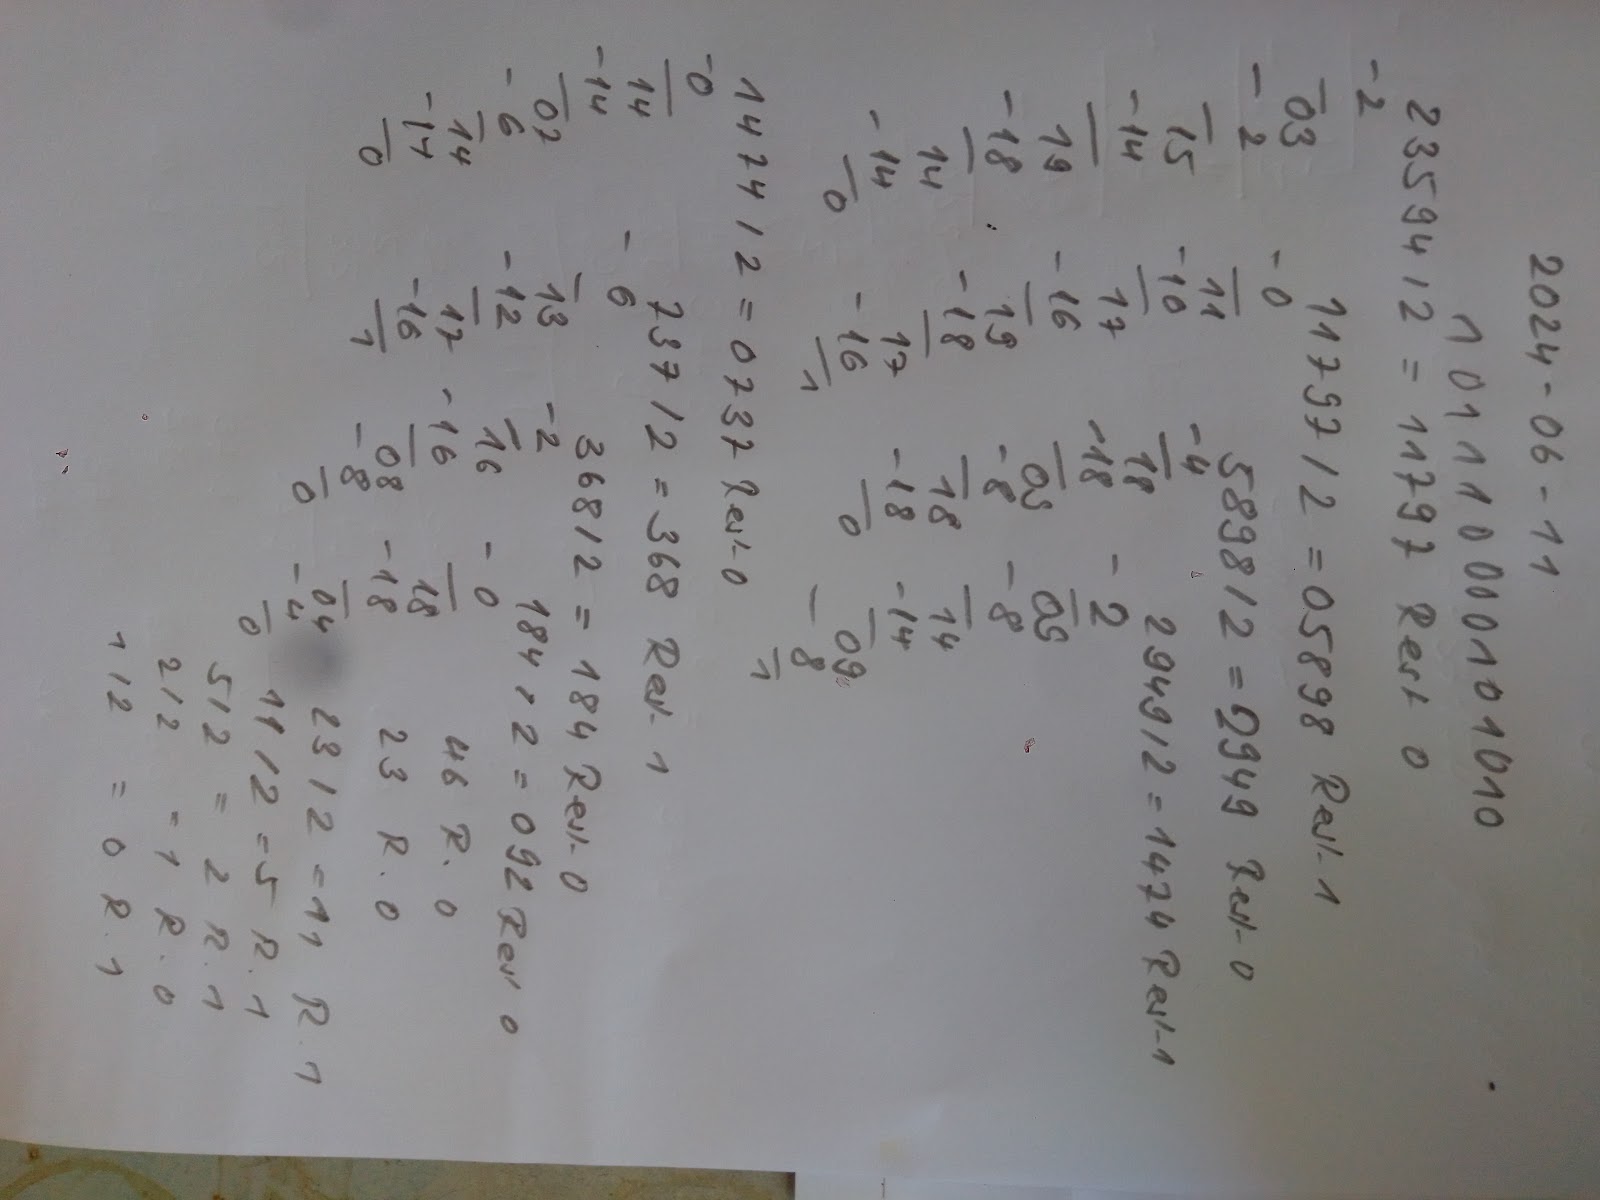 2024-06-11
101110000101010
23594/2 = 11797 Rest 0
-2
03
-2
15
-14
19
-18
14
-14
0
11797/2 = 05898 Rest 1
-0
11
-10
17
-16
19
-18
17
-16
1
5898/2 = 2949 Rest 0
-4
18
-18
09
-8
18
-18
0
2949/2 = 1474 Rest 1
-2
09
-8
14
-14
09
-8
1
1474/2 = 0737 Rest 0
-0
14
-14
07
-6
14
-14
0
737/2 = 368 Rest 1
-6
13
-12
17
-16
1
368/2 = 184 Rest 0
-2
16
-16
08
-8
0
184/2 = 092 Rest 0
-0
18
-18
04
-4
0
46 R. 0
23 R. 0
23/2 = 11 R.1
11/2 = 5 R.1
5/2 = 2 R.1
2/2 = 1 R.0
1/2 = 0 R.1